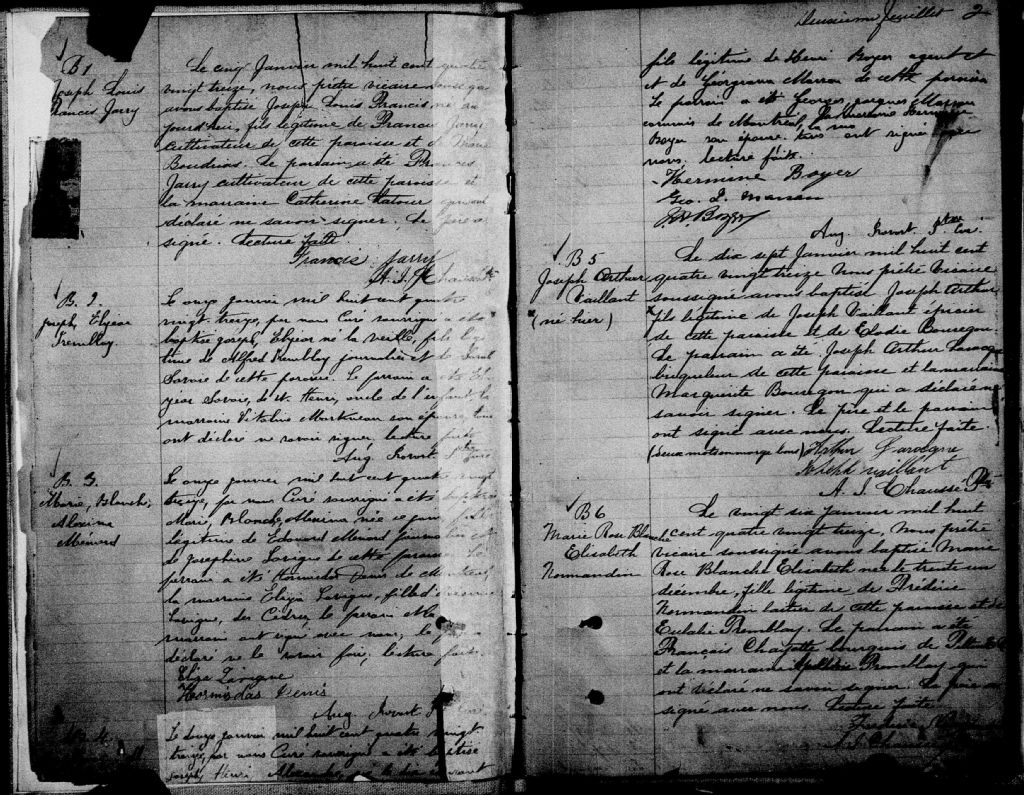 B1
Joseph Louis
Francis Jarry
Le cinq Janvier mil huit cent quatre
vingt treize, nous prêtre vicaire
avons baptisé Joseph Louis Francis né au
jourd'hui, fils légitime de Francis Jarry
cultivateur de cette paroisse et de Marie
Boudrias. Le parrain a été Francis
Jarry cultivateur de cette paroisse et
la marraine Catherine Latour qui ont
déclaré ne savoir signer. Le père a
signé. Lecture faite.
Francis Jarry
A. I. Chaussé Ptre
B. 2.
Joseph, Elzear
Tremblay.
Le onze janvier mil huit cent quatre
vingt treize, par nous Curé soussigné a été
baptisé Joseph, Elzear né la veille, fils légi
time de Alfred Tremblay journalier et de
Savoie de cette paroisse. Le parrain a été El
zear Savoie, de St. Henri, oncle de l'enfant, la
marraine Vitaline Martineau son épouse, qui
ont déclaré ne savoir signer, lecture faite
Aug. Provost Ptre Curé
B. 3.
Marie, Blanche,
Alexina
Ménard
Le onze janvier mil huit cent quatre vingt
treize, par nous Curé soussigné a été baptisée
Marie, Blanche, Alexina née ce jour, fille
légitime de Edouard Ménard journalier et
de Josephine Lavigne de cette paroisse. Le
parrain a été Hormisdas Denis de Montréal,
la marraine Eliza Lavigne, fille d'
Lavigne, des Cèdres, le parrain et la
marraine ont signé avec nous, le père a
déclaré ne le savoir faire, lecture faite.
Eliza Lavigne
Hormisdas Denis
Aug. Provost Ptre Curé
Le douze janvier mil huit cent quatre vingt
treize, par nous Curé soussigné a été baptisé
Joseph, Henri Alexandre,
Deuxième feuillet 2
fils légitime de Henri Boyer agent et
et de Géorgiana Marson de cette paroisse
Le parrain a été Georges Jacques Marson
commis de Montréal, la marraine Hermine
Boyer son épouse. tous ont signé avec
nous. lecture faite.
Hermine Boyer
Geo. J. Marson
Boyer
Aug. Provost Ptre Cur.
B 5
Joseph Arthur
Vaillant
(né hier)
Le dix sept Janvier mil huit cent
quatre vingt treize Nous prêtre Vicaire
soussigné avons baptisé Joseph Arthur
fils légitime de Joseph Vaillant épicier
de cette paroisse et de Elodie Bourgon.
Le parrain a été Joseph Arthur
briqueleur de cette paroisse et la marraine
Marguerite Bourgon qui a déclaré ne
savoir signer. Le père et le parrain
ont signé avec nous. Lecture faite.
(deux mots en marge bons) Arthur Lavigne
Joseph vaillant
A. I. Chaussé Ptre
B 6
Marie Rose Blanche
Elisabeth
Normandin
Le vingt six janvier mil huit
cent quatre vingt treize, Nous prêtre
vicaire soussigné avons baptisé Marie
Rose Blanche Elisabeth née le trente un
décembre, fille légitime de Frédéric
Normandin laitier de cette paroisse et de
Eulalie Tremblay. Le parrain a été
François Chayette bourgeois de
et la marraine Tremblay qui
ont déclaré ne savoir signer. Le père a
signé avec nous. Lecture faite